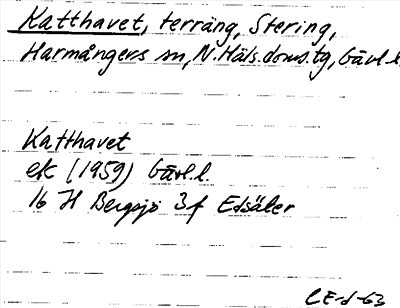 Katthavet, terräng, Stering,
Harmångers sn, N.Häls.doms.tg, Gävl.l
Katthavet
ek (1959) Gävl.l.
16 H Bergsjö 3f Edsäter
CE-d-63